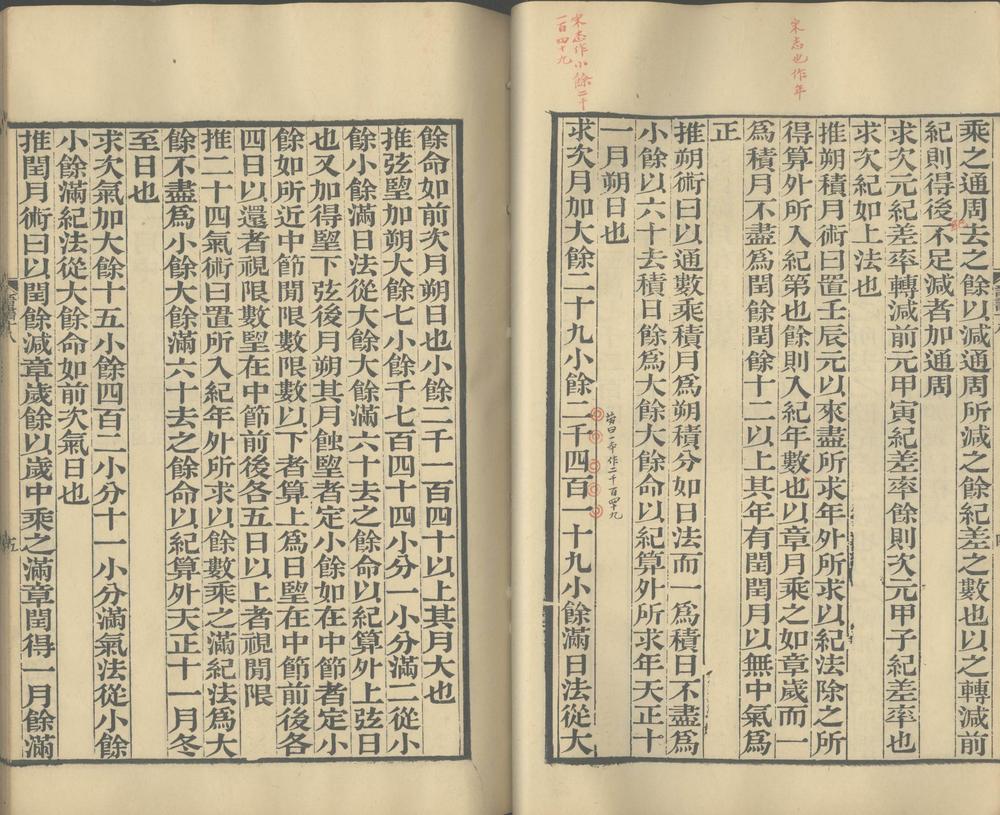 乘之通周去之餘以減通周所減之餘紀差之數也以之轉減前
紀則得後不足減者加通周
紀
求次元紀差率轉減前元甲寅紀差率餘則次元甲子紀差率也
求次紀如上法也
宋志也作年
推朔積月術曰置壬辰元以來盡所求年外所求以紀法除之所
得算外所入紀第也餘則入紀年數也以章月乘之如章歲而一
爲積月不盡爲閏餘閏餘十二以上其年有閏閏月以無中氣爲
正
推朔術曰以通數乘積月爲朔積分如日法而一爲積日不盡爲
小餘以六十去積日餘爲大餘大餘命以紀算外所求年天正十
一月朔日也
昔曰一本作二千一百四十九
求次月加大餘二十九小餘二千四百一十九小餘滿日法從大
宋志作小餘二千
一百四十九
餘命如前次月朔日也小餘二千一百四十以上其月大也
推弦朢加朔大餘七小餘千七百四十四小分一小分滿二從小
餘小餘滿日法從大餘大餘滿六十去之餘命以紀算外上弦日
也又加得朢下弦後月朔其月蝕朢者定小餘如在中節者定小
餘如所近中節閒限數限數以下者算上爲日朢在中節前後各
四日以還者視限數朢在中節前後各五日以上者視閒限
推二十四氣術曰置所入紀年外所求以餘數乘之滿紀法爲大
餘不盡爲小餘大餘滿六十去之餘命以紀算外天正十一月冬
至日也
求次氣加大餘十五小餘四百二小分十一小分滿氣法從小餘
小餘滿紀法從大餘命如前次氣日也
推閏月術曰以閏餘減章歲餘以歲中乘之滿章閏得一月餘滿